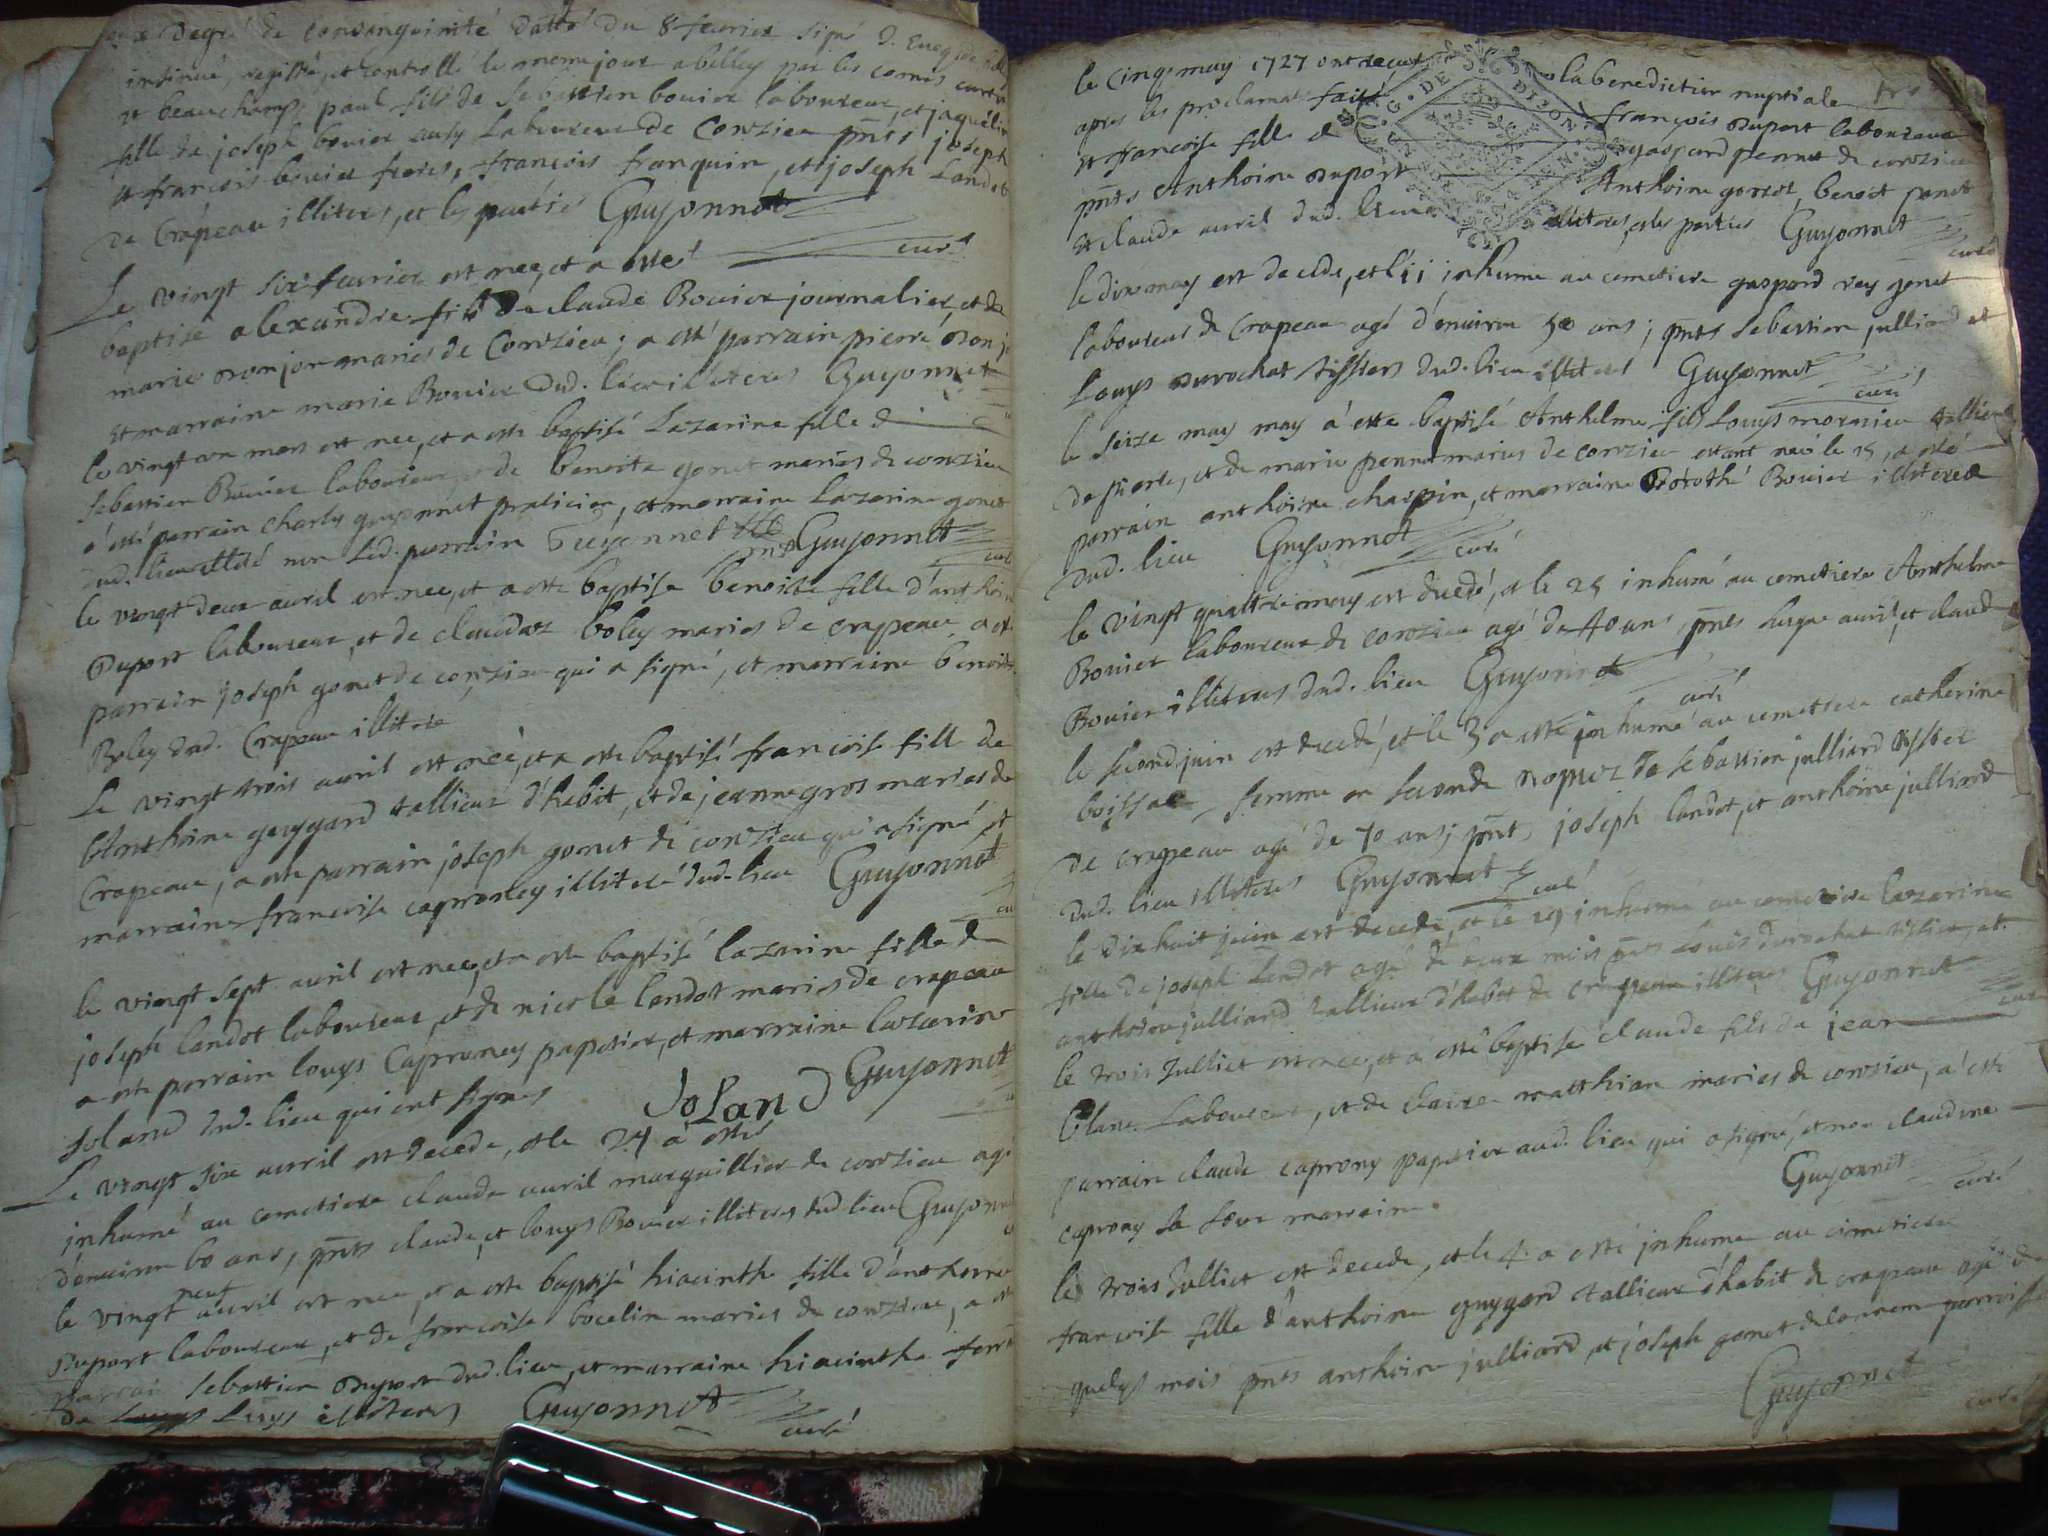 degré de consanguinité datté du 8 fevrier signé
insinué, registré, et controllé le meme jour a belley par les comis
et beauchamp; paul fils de Sebastien bouier laboureur, et jaqueline
fille de joseph bouier aussy Laboureur de Conzieu pnts joseph
et francois bouier freres, francois franquin, et joseph Landot
de Crapeau illiteres, et les parties Guyonnet
curé
Le vingt six feurier est nee, et a esté
baptise alexandre fils de claude Bouier journalier, et de
marie monjon maries de Conzieu; a esté parrain pierre
et marraine marie Bouier dud. lieu illiteres Guyonnet
le vingt un mars est nee, et a este baptisé Lazarine fille de
sebastien Bouier laboureur et de benoite gonet maries de conzieu
a esté parrain charles guyonnet praticien, et marraine Lazarine gonet
dud. lieu non led. parrain Guyonnet Guyonnet
curé
le vingt deux auril est nee, et a este baptise benoite fille d'anthoine
Duport laboureur, et de claudaz boley maries de crapeau, a esté
parrain joseph gonet de conzieu qui a signé, et marraine benoite
Boley dud. Crapeau illiteré
Le vingt trois auril est née, et a este baptisé francoise fille de
anthoine guygard tallieur d'habit, et de jeanne gros maries de
Crapeau, a este parrain joseph gonet de conzieu qui a signé, et
marraine francoise caproney illiteré dud. lieu Guyonnet
le vingt sept auril est nee, et a este baptisé lazarine fille de
joseph landot laboureur, et de nicole landot maries de crapeau
a este parrain louys Caproney papetier, et marraine lazarine
Joland dud. lieu qui ont signés Joland Guyonnet
Le vingt six auril est decede, et le 27 a esté
inhumé au cemetiere claude auril marguillier de conzieu agé
d'enuiron 60 ans, pnts claude, et louys Bouier illiteres dud. lieu Guyonnet
neuf
le vingt auril est nee, et a este baptisé hiacinthe fille d'anthoine
Duport laboureur, et de francoise bocelin maries de conzieu, a esté
parrain Sebastien duport dud. lieu, et marraine hiacinthe
de Luys illiteres Guyonnet
curé
le cinq may 1727 ont receu la benediction nuptiale
apres les proclamats faits francois duport laboureur
et francoise fille de gaspard pennet de conzieu
pnts Anthoine duport Anthoine gonet, benoit ponet
et claude auril dud. lieu illiteres, et les parties Guyonnet
curé
le dix may est decede, et l'11 inhume au cemetiere gaspard rey gonet
laboureur de Crapeau agé d'enuiron 50 ans; pnts sebastien julliard et
Louys durochat tissiers dud. lieu illiteres Guyonnet
curé
le seize may may a este baptisé Anthelme fils Louys mornieu tallieur
de pierre, et de marie pennet maries de conzieu estant née le 15, a esté
parrain anthoine chappin, et marraine Dorothé Bouier illiteres
dud. lieu Guyonnet
curé
le vingt quattre may est decedé, et le 25 inhumé au cemetiere Anthelme
Bouier laboureur de conzieu agé de 40 ans, pnts hugue auril, et claude
Bouier illiteres dud. lieu Guyonnet
curé
le second juin est decedé, et le 3 a esté inhumé au cemetiere catherine
boissat femme en seconde nopces de sebastien julliard tissier
de crapeau agé de 70 ans; pnts joseph landot, et anthoine julliard
dud. lieu illiteres Guyonnet
curé
le dix huit juin est decede, et le 19 inhume au cemetiere lazarine
fille de joseph Landot agé de deux mois pnts Louis durochat tissier, et
anthoine julliard tallieur d'habit de crapeau illiteres Guyonnet
curé
le trois Julliet est nee, et a esté baptise claude fils de jean
blanc Laboureur, et de claire matthian maries de conzieu, a esté
parrain claude caprony papetier aud. lieu qui a signé, et non claudine
caprony sa soeur marraine. Guyonnet
curé
le trois Julliet est decede, et le 4 a esté inhume au cimetiere
francoise fille d'anthoine guygard tallieur d'habit de crapeau agé de
quelqs mois pnts anthoine julliard, et joseph gonet de parroisse
Guyonnet
curé